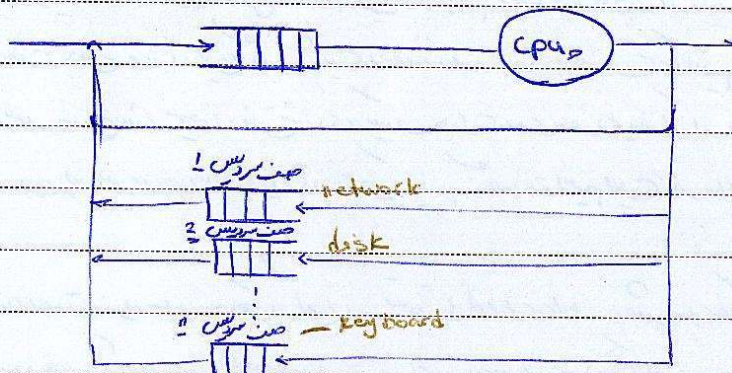 cpu
صف سرویس 1
network
صف سرویس 2
disk
صف سرویس n
keyboard